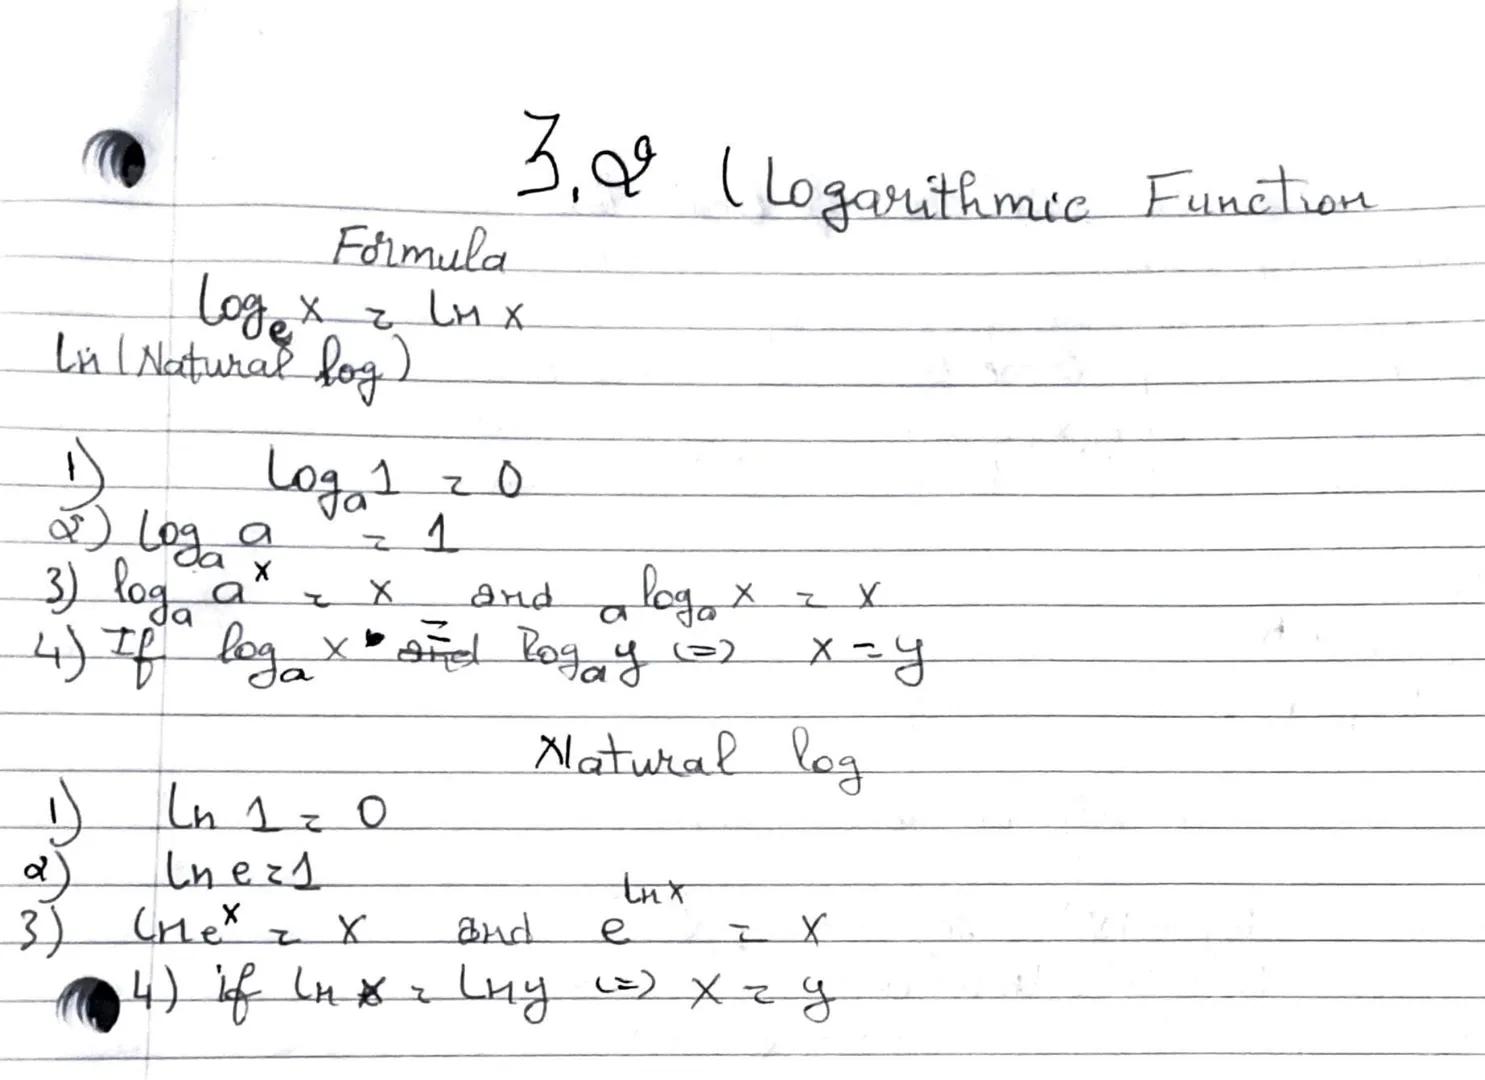 3.2 (Logarithmic Function
Formula
logₑ x = ln x
ln (Natural log)
1) logₐ 1 = 0
2) logₐ a = 1
3) logₐ aˣ = x and a logₐ x = x
4) If logₐ x = logₐ y (=) x = y
Natural log
1) ln 1 = 0
2) ln e = 1
3) ln eˣ = x and e^(ln x) = x
4) if ln x = ln y (=) x = y